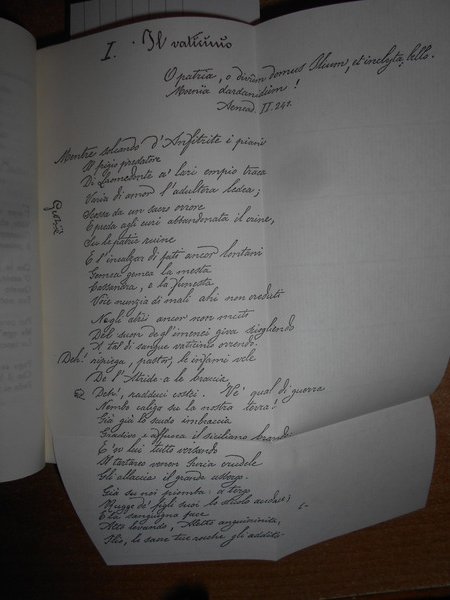 I. Il vaticinio
O patria, o divum domus Ilium, et inclyta bello
Moenia dardanidum!
Aeneid. II. 241.
Mentre solcando d'Anfitrite i piani
Il frigio predatore
Di Laomedonte a' lari empio traea
d'amor l'adultera ledea;
Scossa da un sacro orrore
E sparsa agli euri abbandonata il crine,
Su le patrie ruine
E l'incalzar di fati ancor lontani
Gemea gemea la mesta
Cassandra, e la funesta
Voce nunzia di mali ahi non creduti
Negli atrii ancor non muti
Del suon degl'imenei giva sciogliendo
A tal di sangue vaticinio orrendo.
Deh! ripiega, pastor, le infami vele
De l'Atride a le braccia
Deh!, radduci costei. Ve' qual di guerra
Nembo caligo su la nostra terra!
Già già lo scudo imbraccia
Gradivo, e afferra il brando
E su lui tutto versando
Il tartareo venen Furia crudele
Gli allaccia il grande usbergo.
Già su noi piomba: a tergo
Rugge de' figli suoi lo stuolo
E la sanguigna face
Alto levando, Aletto anguicrinita,
Ilio, le sacre tue rocche gli addita